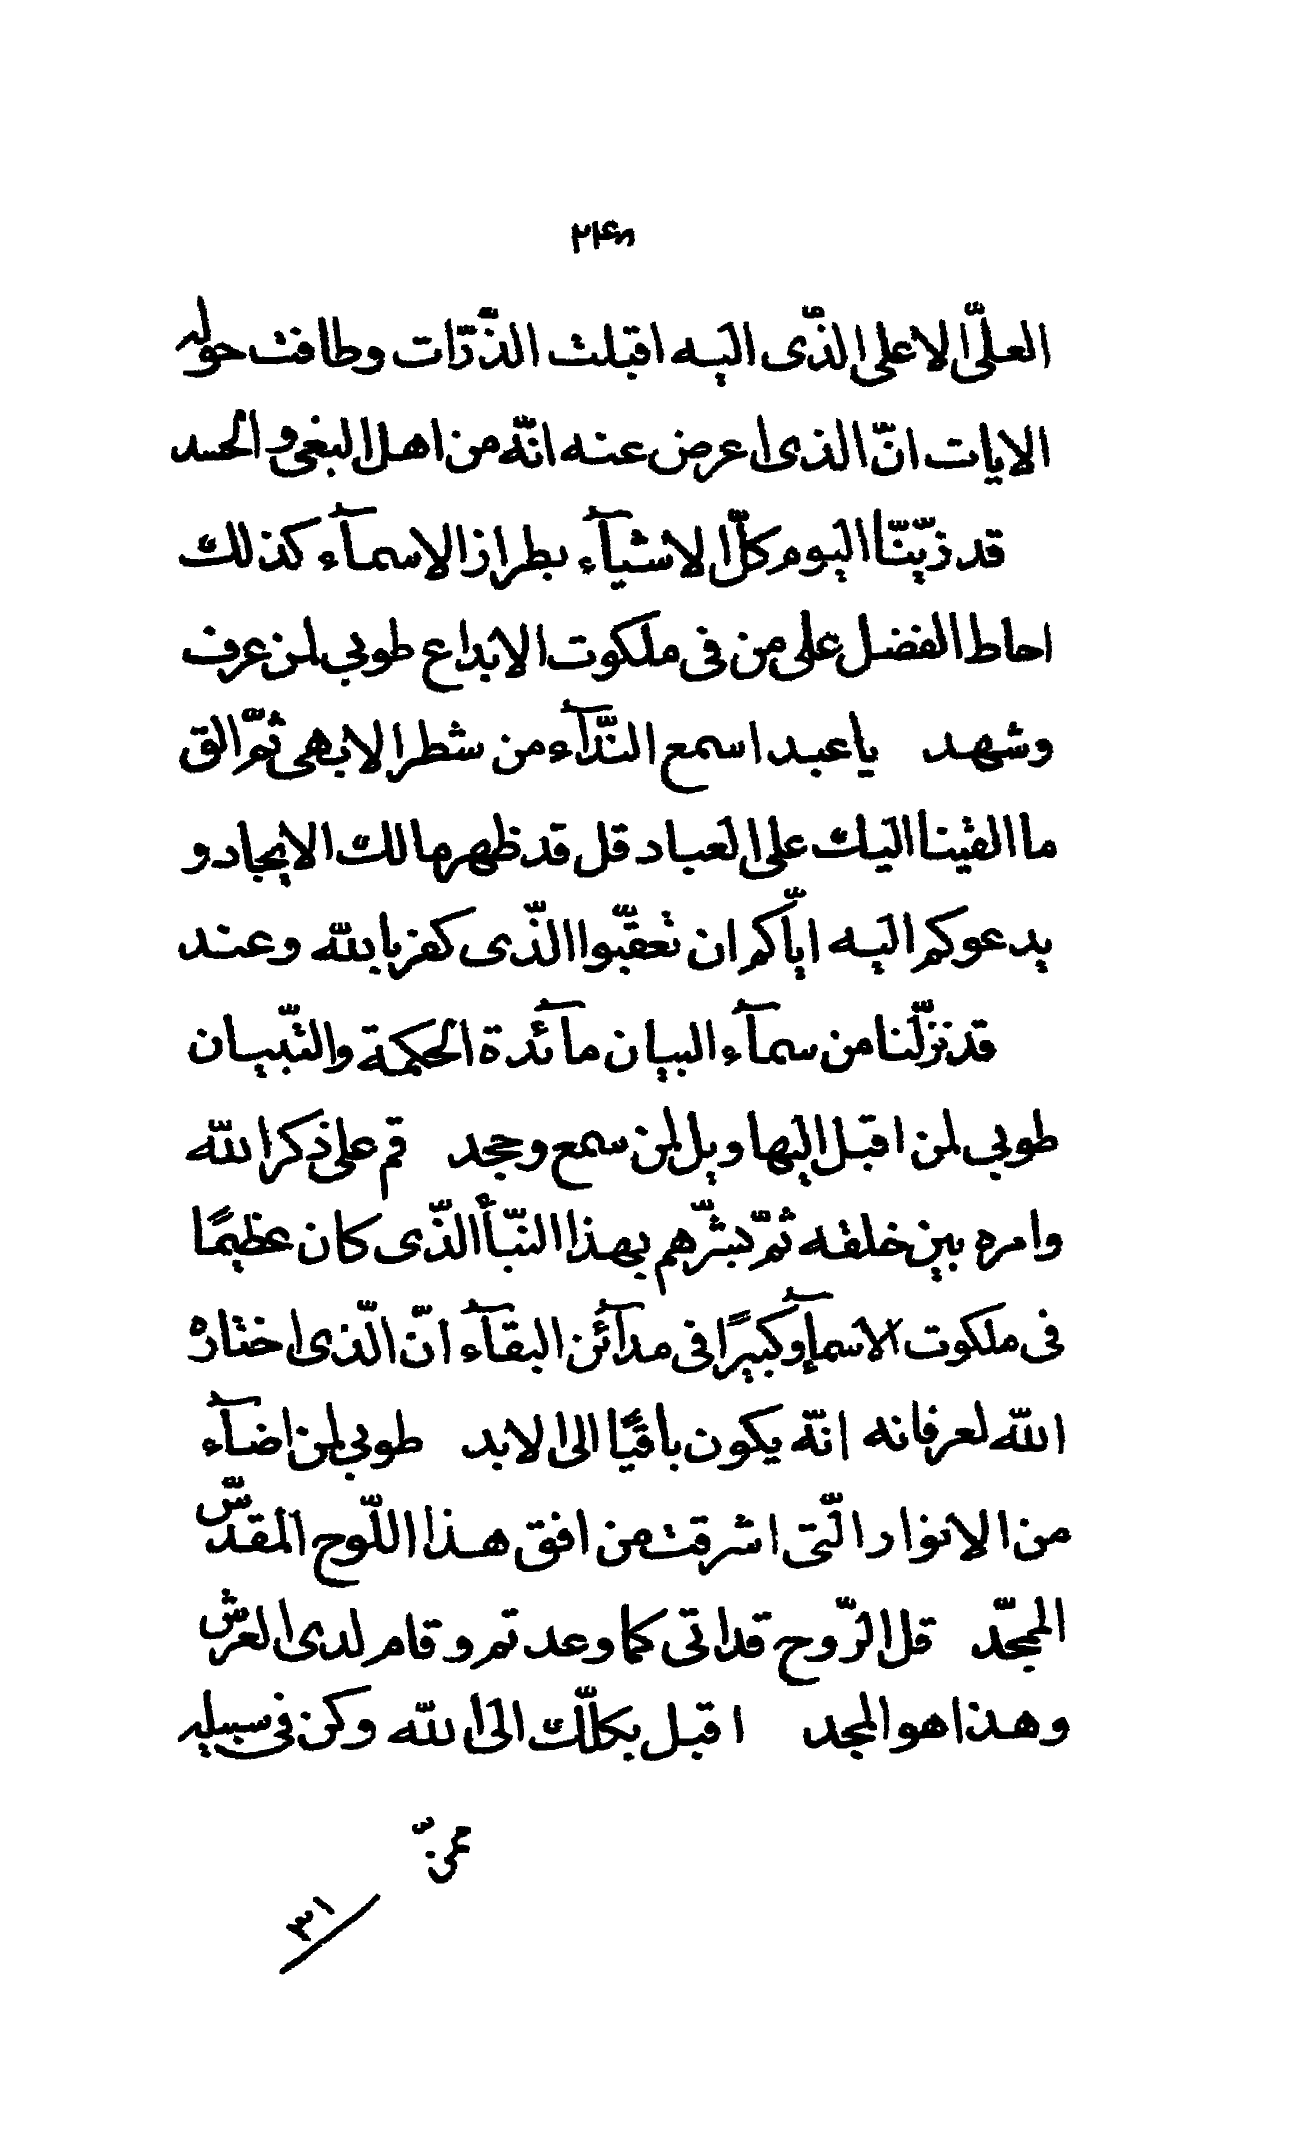 ۲۴۳
العلىّ الاعلى الذّى اليه اقبلت الذّرّات وطافت حوله
الايات انّ الذى اعرض عنه انّه من اهل البغى و الحسد
قد زيّنّا اليوم كلّ الاشيآء بطراز الاسمآء كذلك
احاط الفضل على من فى ملكوت الابداع طوبى لمن عرف
وشهد ياعبد اسمع النّدآء من شطر الابهى ثمّ الق
ما القينا اليك على العباد قل قد ظهر مالك الايجاد و
يدعوكم اليه ايّاكم ان تعقّبوا الذّى كفر بالله وعند
قد نزّلنا من سمآء البيان مآئدة الحكمة والتّبيان
طوبى لمن اقبل اليها ويل لمن سمع وجحد قم على ذكر الله
وامره بين خلقه ثمّ بشّرهم بهذا النّبأ الذّى كان عظيمًا
فى ملكوت الاسمآء وكبيرًا فى مدآئن البقآء انّ الّذى اختاره
الله لعرفانه انّه يكون باقيًا الى الابد طوبى لمن اضآء
من الانوار الّتى اشرقت من افق هذا اللّوح المقدّس
الممجّد قل الرّوح قد اتى كما وعدتم و قام لدى العرش
وهذا هو المجد اقبل بكلّك الى الله وكن فى سبيله
۳۱